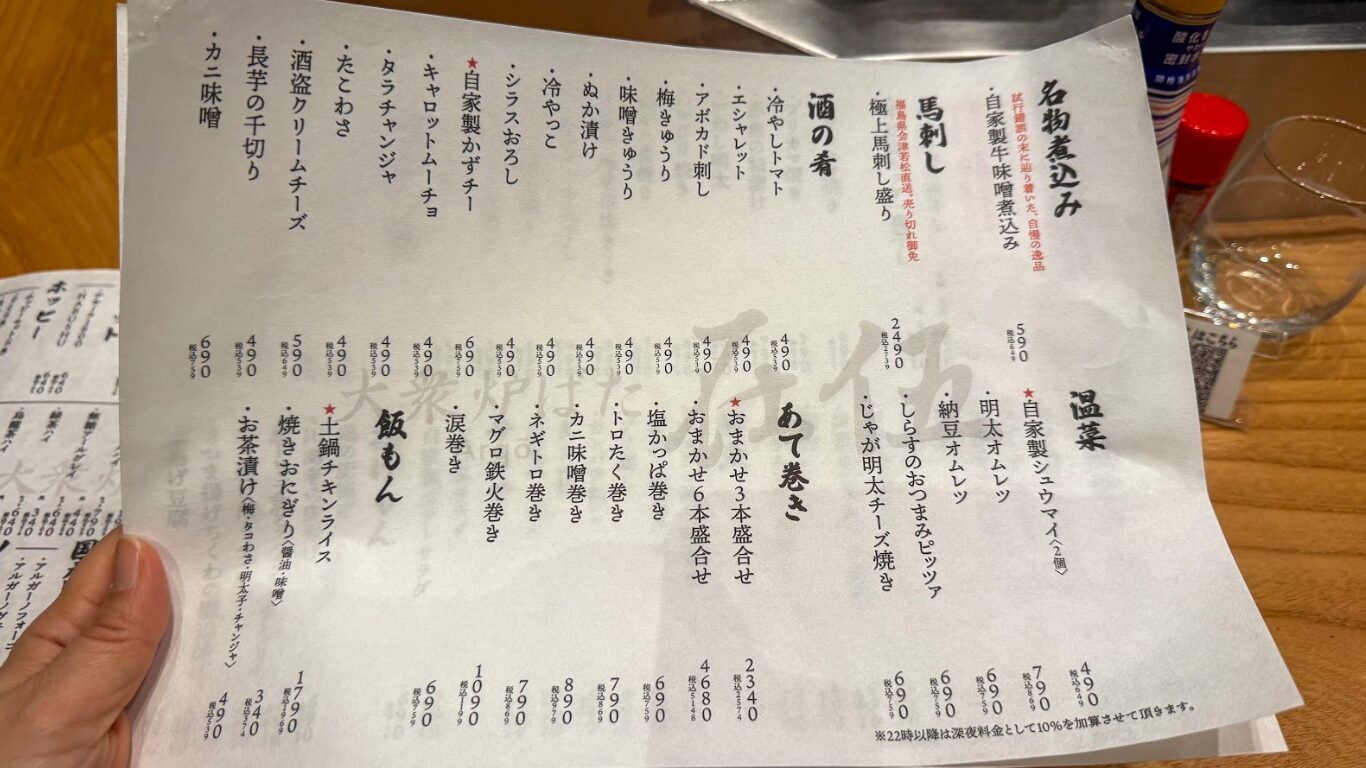 名物煮込み
試行錯誤の末に辿り着いた、自慢の逸品
・自家製牛味噌煮込み 590 税込649
馬刺し
福島県会津若松直送。売り切れ御免
・極上馬刺し盛り 2490 税込2739
酒の肴
・冷やしトマト 490 税込539
・エシャレット 490 税込539
・アボカド刺し 490 税込539
・梅きゅうり 490 税込539
・味噌きゅうり 490 税込539
・ぬか漬け 490 税込539
・冷やっこ 490 税込539
・シラスおろし 490 税込539
★自家製かずチー 690 税込759
・キャロットムーチョ 490 税込539
・タラチャンジャ 490 税込539
・たこわさ 490 税込539
・酒盗クリームチーズ 590 税込649
・長芋の千切り 490 税込539
・カニ味噌 690 税込759
温菜
★自家製シュウマイ〈2個〉 490 税込649
・明太オムレツ 790 税込869
・納豆オムレツ 690 税込759
・しらすのおつまみピッツァ 690 税込759
・じゃが明太チーズ焼き 690 税込759
あて巻き
★おまかせ3本盛合せ 2340 税込2574
・おまかせ6本盛合せ 4680 税込5148
・塩かっぱ巻き 690 税込759
・トロたく巻き 790 税込869
・カニ味噌巻き 890 税込979
・ネギトロ巻き 790 税込869
・マグロ鉄火巻き 1090 税込1199
・涙巻き 690 税込759
飯もん
★土鍋チキンライス 1790 税込1969
・焼きおにぎり〈醤油・味噌〉 340 税込374
・お茶漬け〈梅・タコわさ・明太子・チャンジャ〉 490 税込539
※22時以降は深夜料金として10%を加算させて頂きます。
大衆炉ばた
ホッピー
はこちら